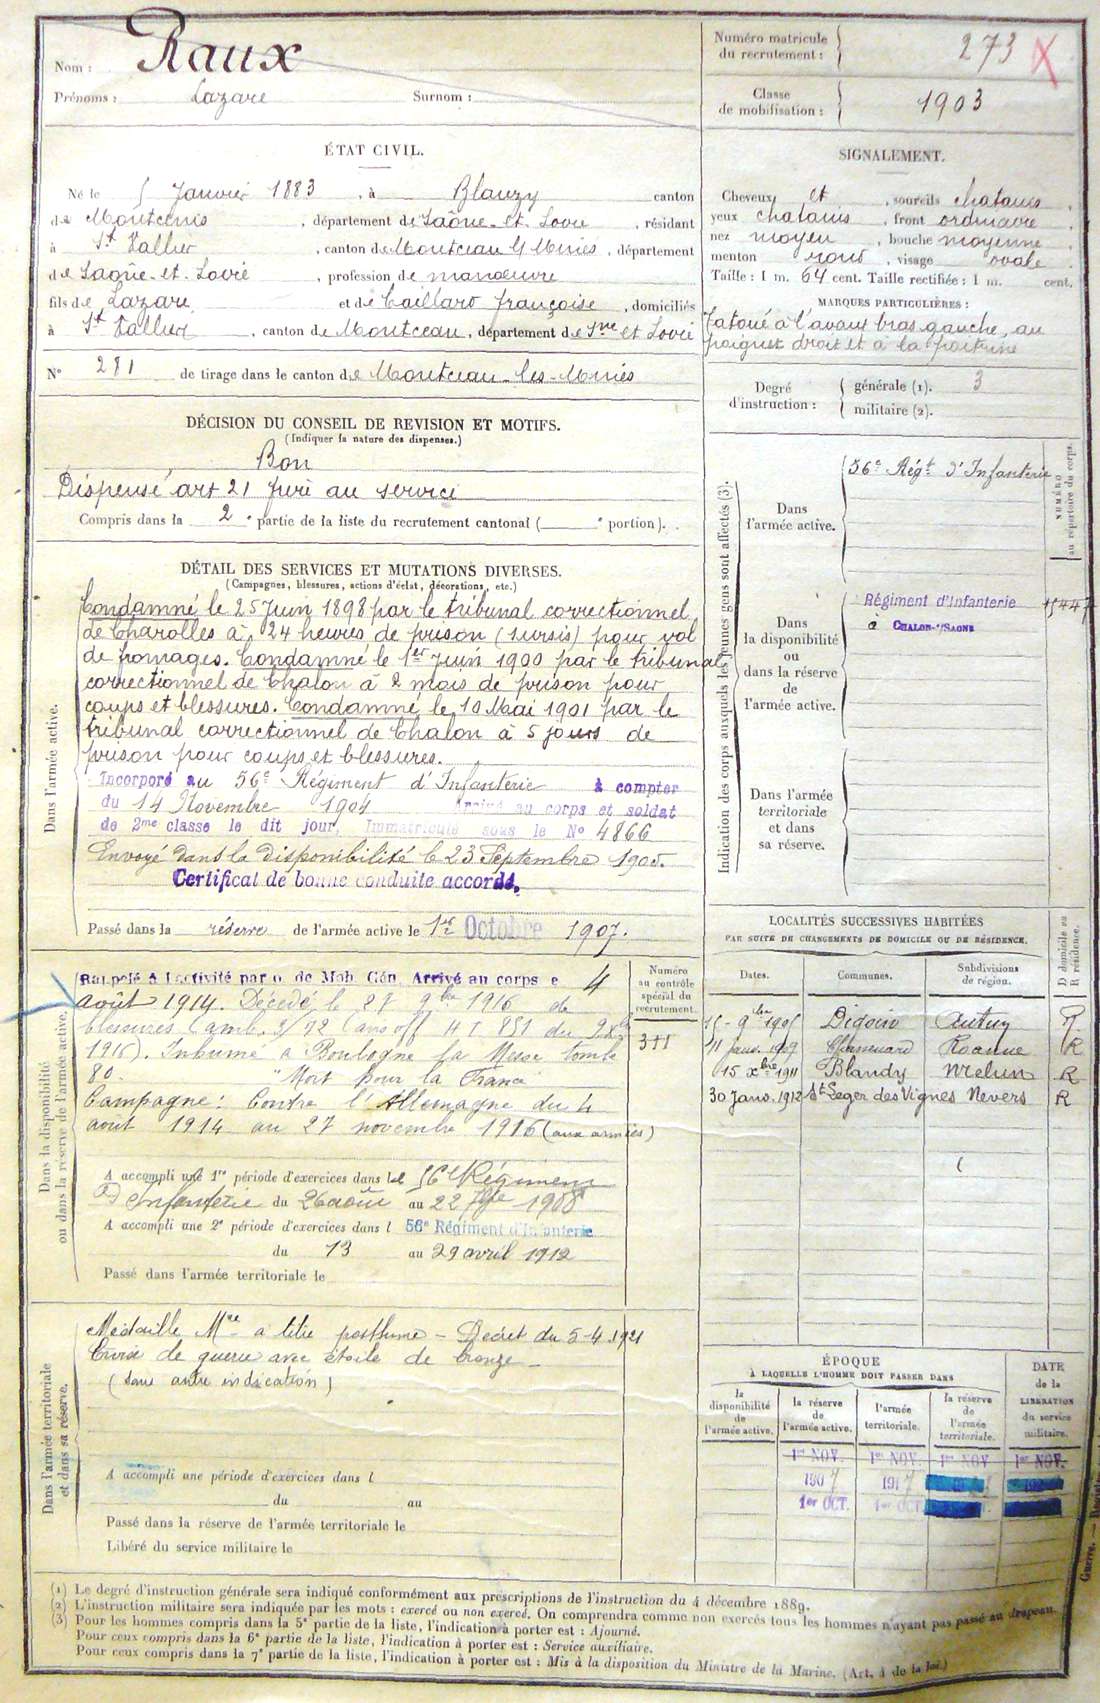 Nom : Raux
Prénoms : Lazare Surnom :
Numéro matricule du recrutement : 273
Classe de mobilisation : 1903
ÉTAT CIVIL.
Né le 5 Janvier 1883, à Blanzy canton
de Montcenis, département de Saône-et-Loire, résidant
à St Vallier, canton de Montceau l/ Mines, département
de Saône-et-Loire, profession de manœuvre
fils de Lazare et de Caillard françoise, domiciliés
à St Vallier, canton de Montceau, département de Sne et Loire
N° 281 de tirage dans le canton de Montceau-les-Mines
SIGNALEMENT.
Cheveux et, sourcils chatains,
yeux chatains, front ordinaire,
nez moyen, bouche moyenne,
menton rond, visage ovale.
Taille : 1 m. 64 cent. Taille rectifiée : 1 m. cent.
MARQUES PARTICULIÈRES :
Tatoué à l'avant bras gauche, au
poignet droit et à la poitrine
Degré d'instruction : générale (1). 3
militaire (2).
DÉCISION DU CONSEIL DE REVISION ET MOTIFS.
(Indiquer la nature des dispenses.)
Bon
Dispensé art 21 frère au service
Compris dans la 2e partie de la liste du recrutement cantonal ( e portion).
DÉTAIL DES SERVICES ET MUTATIONS DIVERSES.
(Campagnes, blessures, actions d'éclat, décorations, etc.)
Dans l'armée active.
Condamné le 25 Juin 1898 par le tribunal correctionnel
de Charolles à 24 heures de prison (sursis) pour vol
de fromages. Condamné le 1er Juin 1900 par le tribunal
correctionnel de Chalon à 2 mois de prison pour
coups et blessures. Condamné le 10 Mai 1901 par le
tribunal correctionnel de Chalon à 5 jours de
prison pour coups et blessures.
Incorporé au 56e Régiment d'Infanterie à compter
du 14 Novembre 1904 Arrivé au corps et soldat
de 2me classe le dit jour, Immatriculé sous le N° 4866
Envoyé dans la disponibilité le 23 Septembre 1905.
Certificat de bonne conduite accordé.
Passé dans la réserve de l'armée active le 1er Octobre 1907.
Indication des corps auxquels les jeunes gens sont affectés (3).
NUMÉRO au répertoire du corps.
Dans l'armée active.
56e Régt d'Infanterie
Dans la disponibilité ou dans la réserve de l'armée active.
Régiment d'Infanterie
à CHALON-s/SAONE
Dans l'armée territoriale et dans sa réserve.
Dans la disponibilité ou dans la réserve de l'armée active.
Numéro au contrôle spécial du recrutement.
Rappelé à l'activité par o. de Mob. Gén. Arrivé au corps e 4
août 1914. Décédé le 27 9bre 1916 de
blessures (amb. 3/72
1916). Inhumé à Boulogne la tombe
80. "Mort pour la France"
Campagne : Contre l'Allemagne du 4
août 1914 au 27 novembre 1916 (aux armées)
A accompli une 1re période d'exercices dans le 56e Régiment
d'Infanterie du 26 août au 22 7bre 1908
A accompli une 2e période d'exercices dans l 56e Régiment d'Infanterie
du 13 au 29 avril 1912
Passé dans l'armée territoriale le
LOCALITÉS SUCCESSIVES HABITÉES
PAR SUITE DE CHANGEMENTS DE DOMICILE OU DE RÉSIDENCE.
Dates. Communes. Subdivisions de région. D domicile ou R résidence.
15-9bre 1905 Digoin Autun R
11 janv. 1909 Roanne R
15 xbre 1911 Blandy Melun R
30 Janv. 1912 St Leger des Vignes Nevers R
Dans l'armée territoriale et dans sa réserve.
Médaille Mre à titre posthume - Décret du 5-4.1921
Croix de guerre avec étoile de bronze
(sans autre indication)
A accompli une période d'exercices dans l
du au
Passé dans la réserve de l'armée territoriale le
Libéré du service militaire le
ÉPOQUE
À LAQUELLE L'HOMME DOIT PASSER DANS
la disponibilité de l'armée active.
la réserve de l'armée active.
l'armée territoriale.
la réserve de l'armée territoriale.
DATE de la LIBÉRATION du service militaire.
1er NOV. 1er NOV. 1er NOV. 1er NOV.
1907 1917
1er OCT. 1er OCT.
(1) Le degré d'instruction générale sera indiqué conformément aux prescriptions de l'instruction du 4 décembre 1889.
(2) L'instruction militaire sera indiquée par les mots : exercé ou non exercé. On comprendra comme non exercés tous les hommes n'ayant pas passé au drapeau.
(3) Pour les hommes compris dans la 5e partie de la liste, l'indication à porter est : Ajourné.
Pour ceux compris dans la 6e partie de la liste, l'indication à porter est : Service auxiliaire.
Pour ceux compris dans la 7e partie de la liste, l'indication à porter est : Mis à la disposition du Ministre de la Marine. (Art. 4 de la loi.)